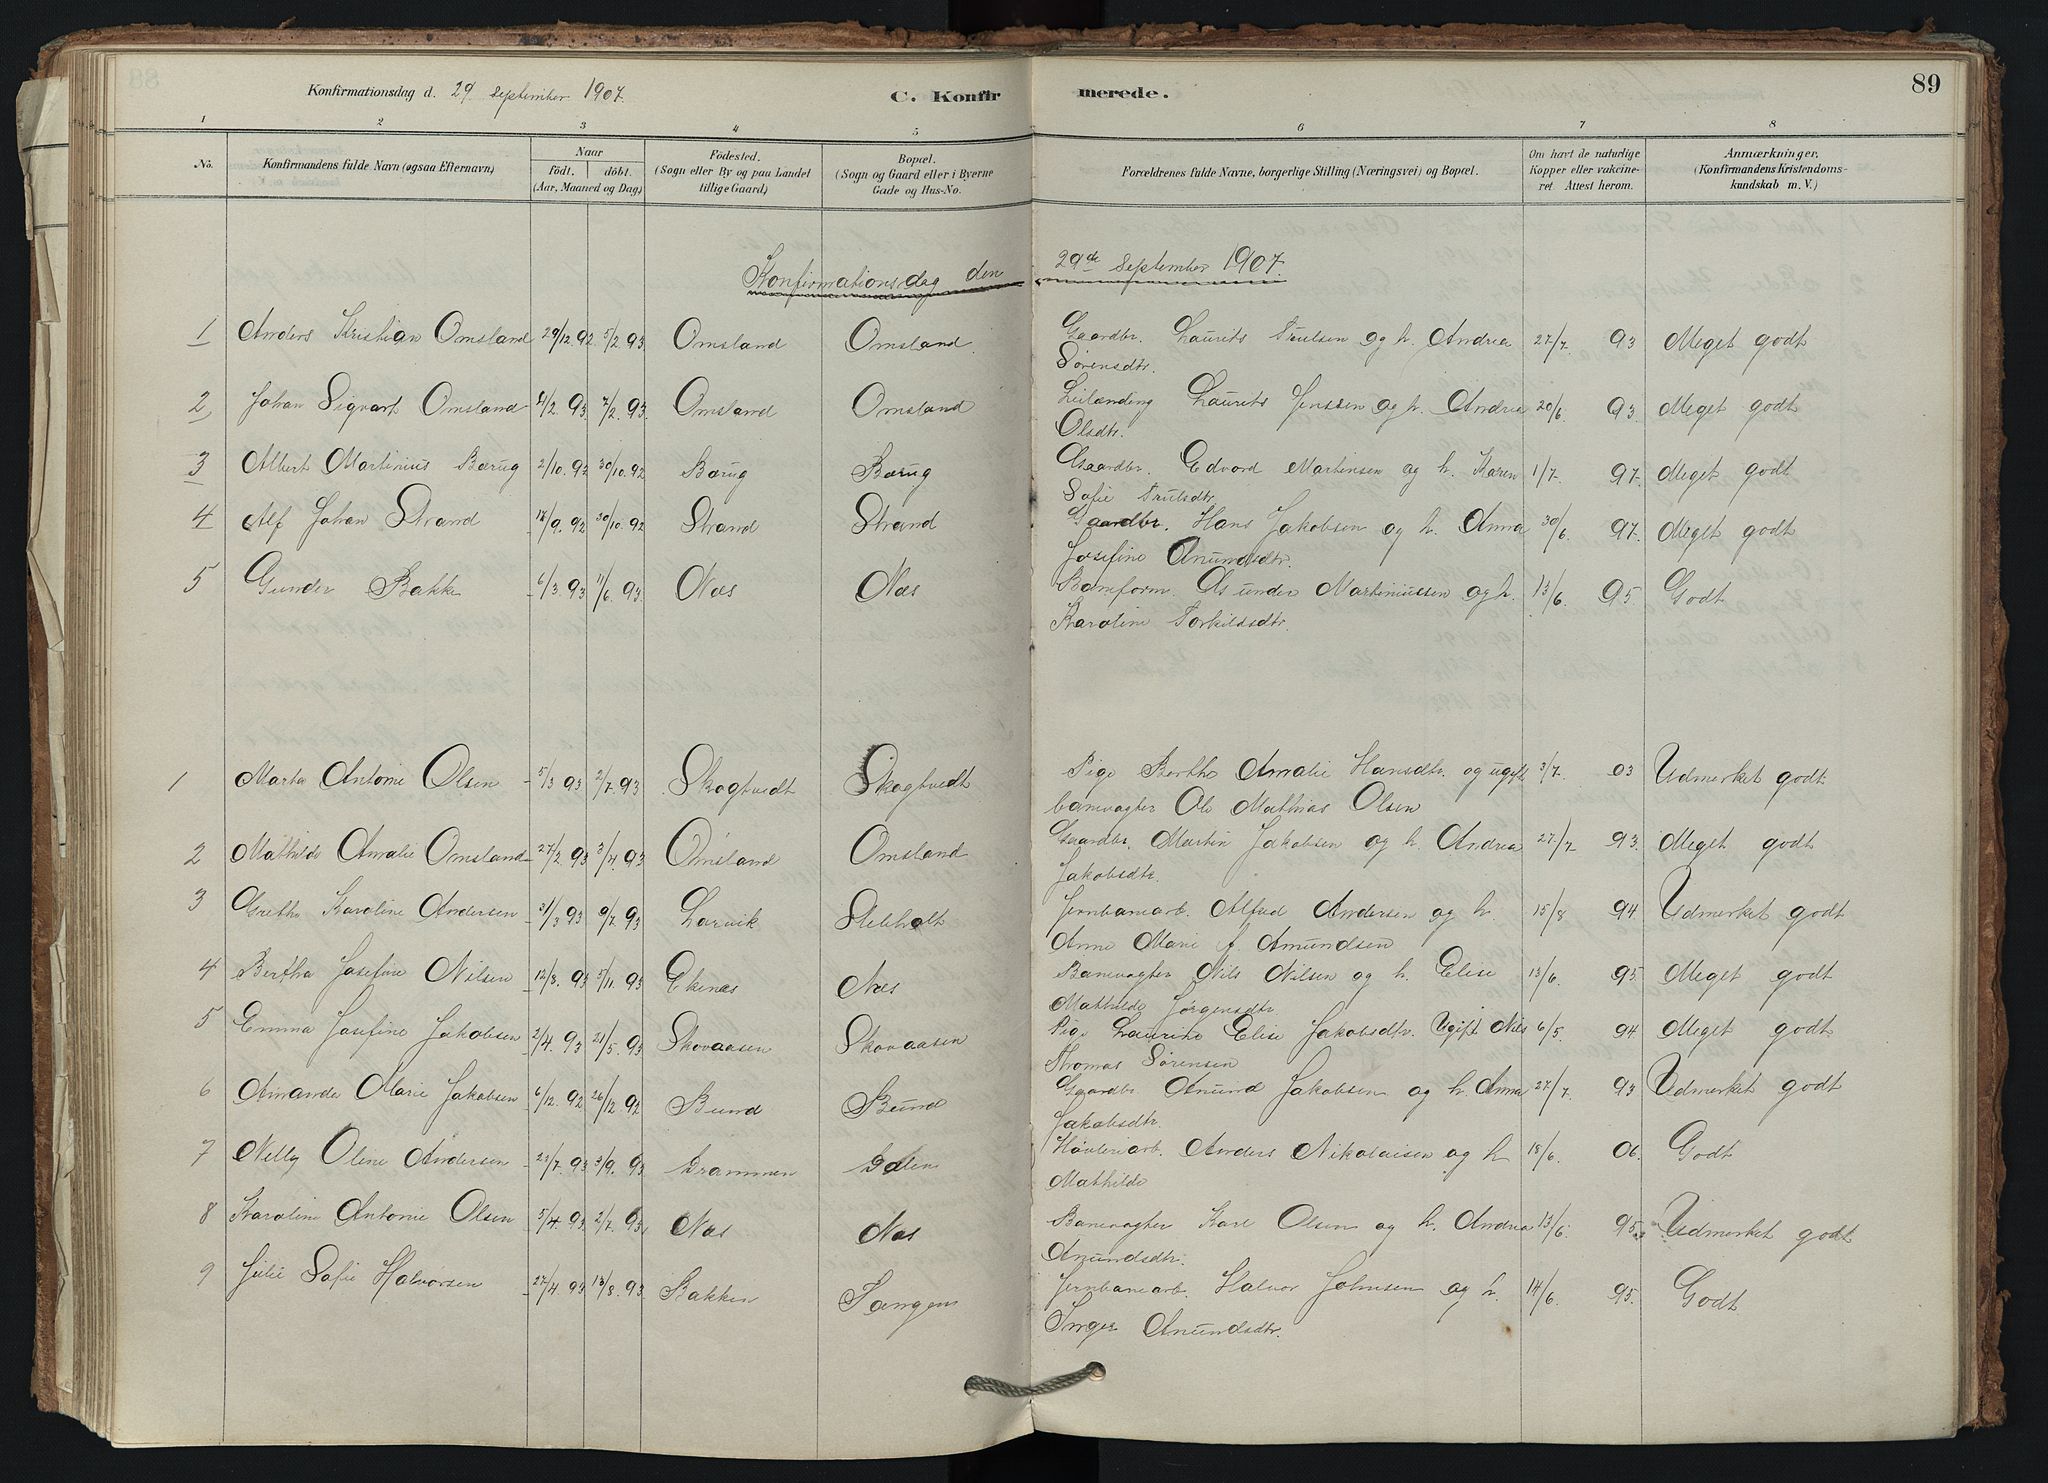 Konfirmationsdag d. 29 September 1907. C. Konfirmerede. 89
1 2 3 4 5 6 7 8
No. Konfirmandens fulde Navn (ogsaa Efternavn) Naar födt. döbt. (Aar, Maaned og Dag) Födested. (Sogn eller By og paa Landet tillige Gaard) Bopæl. (Sogn og Gaard eller i Byerne Gade og Hus-No. Forældrenes fulde Navne, borgerlige Stilling (Næringsvei) og Bopæl. Om havt de naturlige Kopper eller vakcineret. Attest herom. Anmærkninger. (Konfirmandens Kristendomskundskab m. V.)
Konfirmationsdag den 29de September 1907.
1 Anders Kristian Omsland 29/12.92. 5/2.93. Omsland Omsland Gaardbr. Laurits Trulsen og h. Andrea 27/7. 93 Meget godt
Sörensdtr.
2, Johan Sigvart Omsland 2/2.93. 7/2.93. Omsland Omsland Leilænding Laurits Jenssen og h. Andrea 20/6. 93. Meget godt
Olsdtr.
3 Albert Martinius Barug 2/10.92 30/10.92 Barug Barug Gaardbr. Edvard Martinsen og h. Karen 1/7. 97. Meget godt
Sofie Trulsdtr.
4 Alf Johan Strand /9.92 30/10.92 Strand Strand Gaardbr. Hans Jakobsen og h. Anna 30/6 97. Meget godt
Josefine Anundsdtr.
5 Gunder Bakke 6/3.93 11/6.93. Næs Næs Banform. Gunder Martiniussen og h. 13/6. 95. Godt
Karoline Torkildsdtr.
1 Marta Antonie Olsen 5/3 93 2/7.93 Skogtvedt Skogtvedt Pige Berthe Amalie Hansdtr. og ugift 3/7. 03 Udmerket godt.
banevagter Ole Mathias Olsen
2 Mathilde Amalie Omsland 27/2.93 3/4.93 Omsland Omsland Gaardbr. Martin Jakobsen og h. Andrea 27/7 93. Meget godt
Jakobsdtr.
3 Grethe Karoline Andersen 31/3 93 9/7.93 Larvik Stebholt Jernbanearb. Alfred Andersen og h. 15/8 94 Udmerket godt
Anne Marie f. Amundsen
4 Bertha Josefine Nilsen 12/8.93 5/11.93 Ekenæs Næs Banevagter Nils Nilsen og h. Elise 13/6. 95. Meget godt
Mathilde Jörgensdtr.
5 Emma Josefine Jakobsen 2/4.93 21/5.93 Skovaasen Skovaasen Pige Laurike Elise Jakobsdtr. Ugift Nils 6/5. 94 Meget godt
Thomas Sørensen
6 Amanda Marie Jakobsen 6/12.92 26/12 92 Bund Bund Gaardbr. Anund Jakobsen og h. Anna 27/7. 93 Udmerket godt
Jakobsdtr.
7 Nelly Oline Andersen 23/7.93 3/9.93 Drammen Høvleriarb. Anders Nikolaisen og h 18/6. 06. Godt
Mathilde
8 Karoline Antonie Olsen 5/4.93 2/7.93, Næs Næs Banevagter Karl Olsen og h. Andrea 13/6. 95. Udmerket godt
Anundsdtr.
9 Julie Sofie Halvorsen 27/4.93 13/8.93. Bakken Tangen Jernbanearb. Halvor Johnsen og h. 14/6. 95. Godt
Inger Anundsdtr.